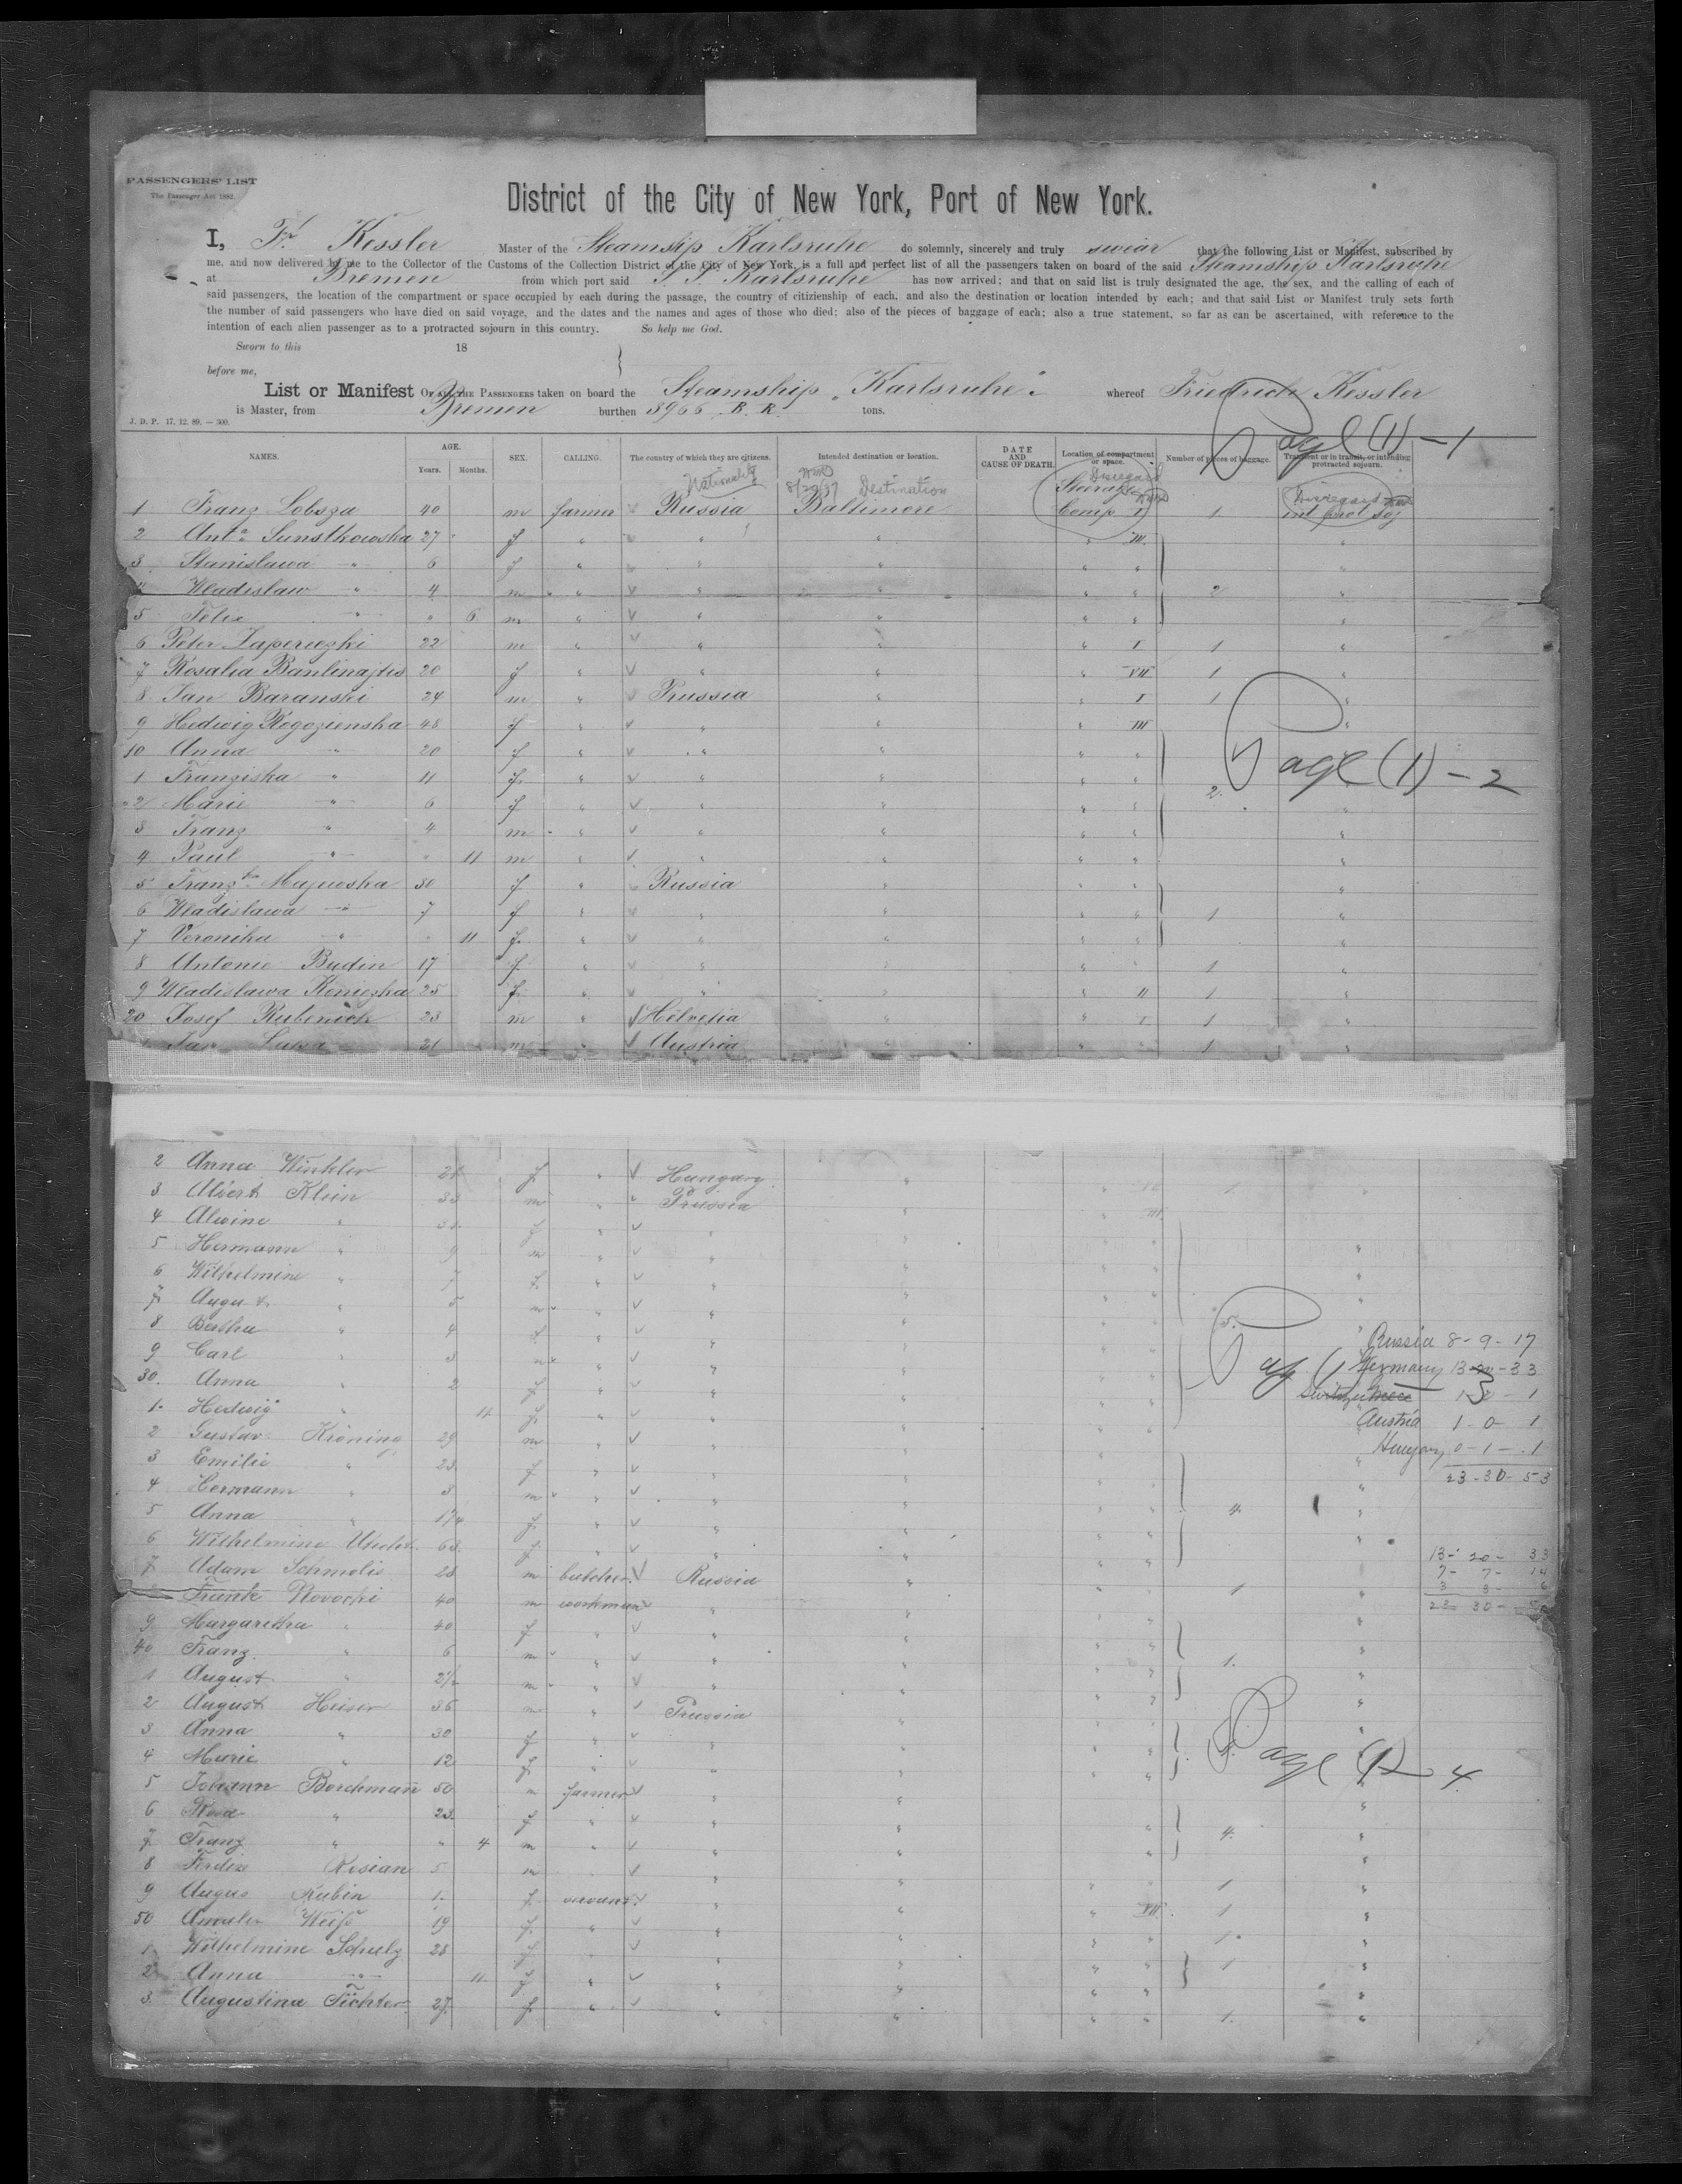 PASSENGERS' LIST
The Passenger Act 1882.
District of the City of New York, Port of New York.
I, Fr. Kessler Master of the Steamship Karlsruhe do solemnly, sincerely and truly swear that the following List or Manifest, subscribed by
me, and now delivered by me to the Collector of the Customs of the Collection District of the City of New York, is a full and perfect list of all the passengers taken on board of the said Steamship Karlsruhe
at Bremen from which port said S. S. Karlsruhe has now arrived; and that on said list is truly designated the age, the sex, and the calling of each of
said passengers, the location of the compartment or space occupied by each during the passage, the country of citizienship of each, and also the destination or location intended by each; and that said List or Manifest truly sets forth
the number of said passengers who have died on said voyage, and the dates and the names and ages of those who died; also of the pieces of baggage of each; also a true statement, so far as can be ascertained, with reference to the
intention of each alien passenger as to a protracted sojourn in this country. So help me God.
Sworn to this 18
before me,
List or Manifest OF ALL THE PASSENGERS taken on board the Steamship "Karlsruhe" whereof Friedrich Kessler
is Master, from Bremen burthen 3966 B. R. tons.
J. D. P. 17. 12. 89. — 500.
Page (1) - 1
NAMES. AGE. Years. Months. SEX. CALLING. The country of which they are citizens. Intended destination or location. DATE AND CAUSE OF DEATH. Location of compartment or space. Number of pieces of baggage. Transient or in transit, or intending protracted sojourn.
Nationality 8/29/37 Destination Disregard Disregard
1 Franz Lobsza 40 m farmer Russia Baltimore Steerage Comp I 1 int prot soj
2 Anta Sunstkowska 27 f " " " " III "
3 Stanislawa " 6 f " " " " " "
4 Wladislaw " 4 m " " " " " 2 "
5 Felix " " 6 m " " " " " "
6 Peter 22 m " " " " I 1 "
7 Rosalia 20 f " " " " VII 1 "
8 Jan Baranski 24 m " Prussia " " I 1 "
9 Hedwig Rogozienska 48 f " " " " III "
10 Anna " 20 f " " " " " "
1 Franziska " 11 f " " " " "
Page (1) - 2
2 Marie " 6 f " " " " " 2 "
3 Franz " 4 m " " " " " "
4 Paul " " 11 m " " " " " "
5 Franzka Majewska 30 f " Russia " " " "
6 Wladislawa " 7 f " " " " " 1 "
7 Veronika " " 11 f " " " " " "
8 Antonie Budin 17 f " " " " " 1 "
9 Wladislawa Koniezka 25 f " " " " II 1 "
20 Josef Rubenich 23 m " Helvetia " " I 1 "
Jan 21 m " Austria " " 1 "
2 Anna Winkler f " Hungary " 1
3 Albert Klein m " Prussia " III
4 Alwine " f "
5 Hermann " 9 m " " "
6 Wilhelmine " 7 f " " "
7 August " 5 m " " "
8 Bertha " 4 f " " " 5.
Russia 8 - 9 - 17
9 Carl " 3 m " " "
Germany 13 - 20 - 33
30. Anna " 2 f " " "
1 - 0 - 1
1. Hedwig " 11 f " " "
Austria 1 - 0 - 1
2 Gustav Kröning 29 m " " "
Hungary 0 - 1 - 1
3 Emilie " 23 f " " "
23 - 30 - 53
4 Hermann " 3 m " " "
5 Anna " f " " " 4. "
6 Wilhelmine 63 f " " "
13 - 20 - 33
7 Adam Schmolis 28 m butcher Russia "
7 - 7 - 14
8 Frank Novocki 40 m workman " " 1 "
3 3 - 6
23 - 30 - 53
9 Margaretha " 40 f " " " "
40 Franz " 6 m " " " 1. "
1 August " 2½ m " " " "
2 August Heiser 36 m " Prussia " "
3 Anna " 30 f " " " "
4 Marie " 12 f " " "
Page (1) - 4
5 Johann Borchmann 50 m farmer " " "
6 Rosa " 23 f " " " "
7 Franz " " 4 m " " " 4. "
8 m " " "
9 Rubin f. servant " " VII 1 "
50 Weiß 19 f. " " " 1 "
1 Wilhelmine Schulz 28 f " " " 1 "
2 Anna " 11 f " " " "
3 Augustina Fichter 27 f " " " 1. "